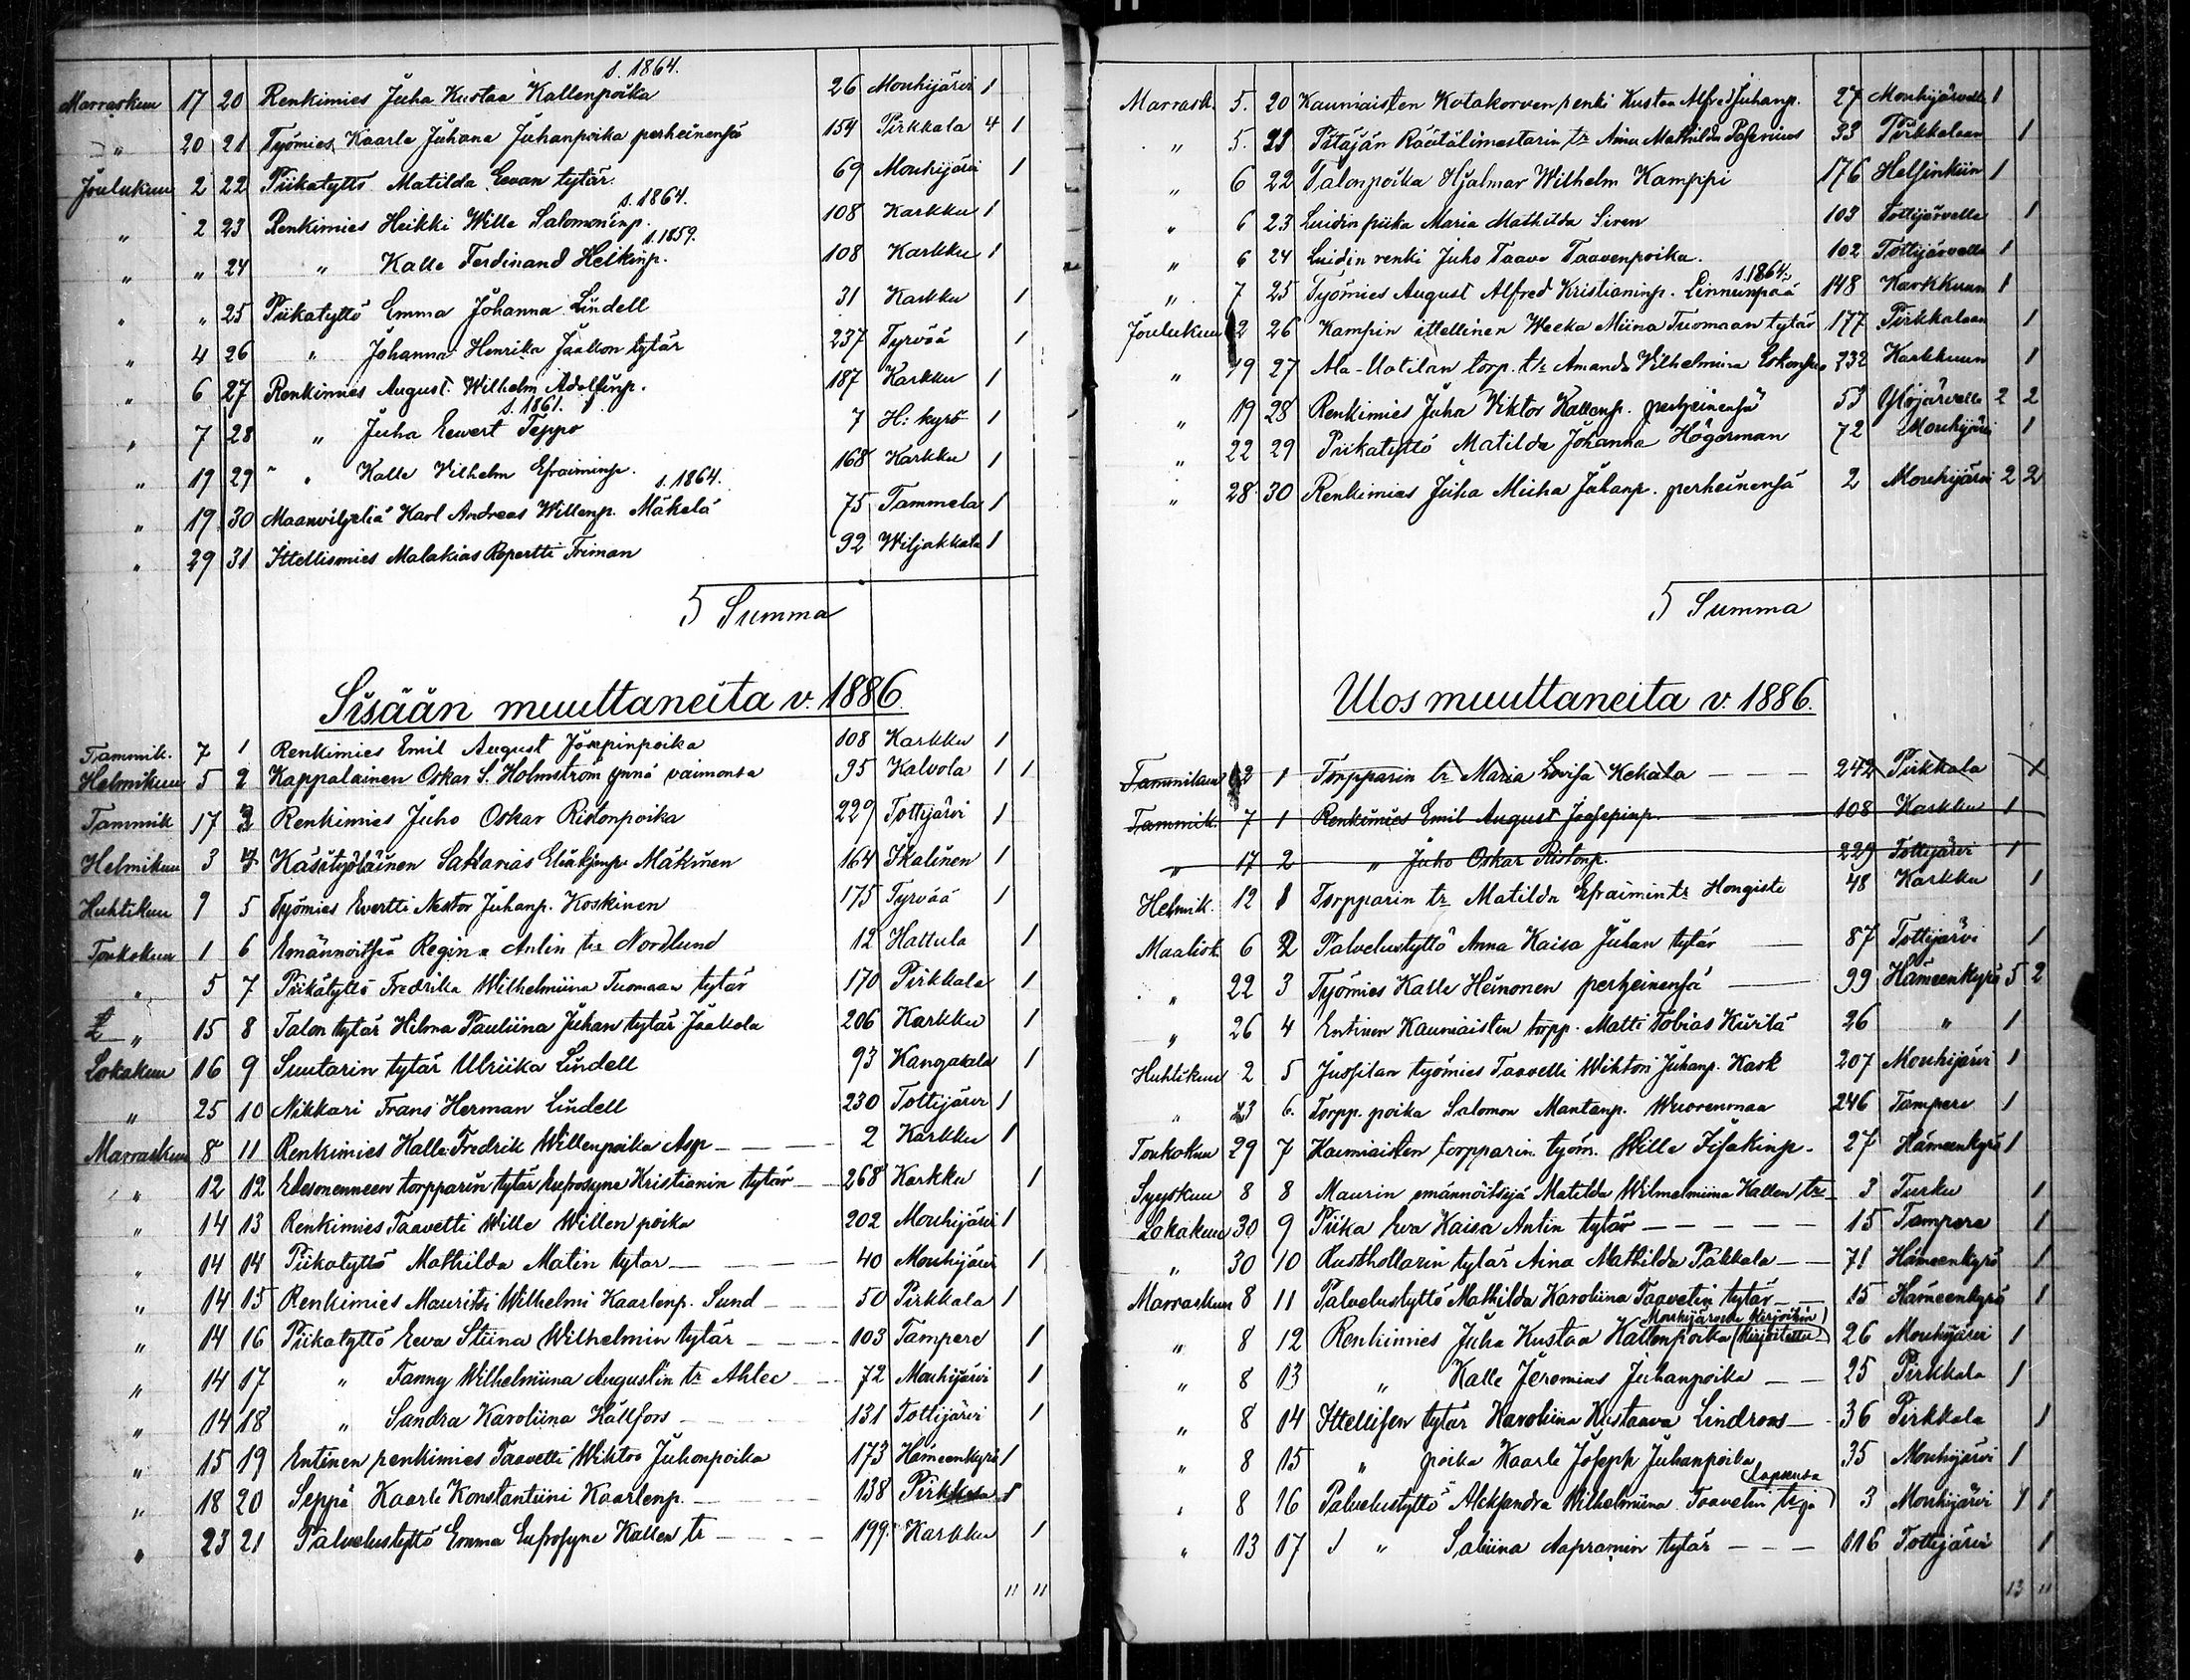 s. 1864.
Marraskuu 17 20 Renkimies Juha Kustaa Kallenpoika 26 Mouhijärvi 1
" 20 21 Työmies Kaarle Juhana Juhanpoika perheinensä 154 Pirkkala 4 1
Joulukuu 2 22 Piikatyttö Matilda Eevan tytär. 69 Mouhijärvi 1
s. 1864.
" 2 23 Renkimies Heikki Wille Salomoninp. 108 Karkku 1
s. 1859.
" " 24 " Kalle Ferdinand Heikinp. 108 Karkku 1
" " 25 Piikatyttö Emma Johanna Lindell 31 Karkku 1
" 4 26 " Johanna Henrika Jaakon tytär 237 Tyrvää 1
" 6 27 Renkimies August Wilhelm Adolfinp. 187 Karkku 1
s. 1861.
" 7 28 " Juha Eewert Teppo 7 H: kyrö 1
" 19 29 " Kalle Vilhelm Efraiminp. 168 Karkku 1
s. 1864.
" 19 30 Maanviljeliä Karl Andreas Willenp. Mäkelä 75 Tammela 1
" 29 31 Ittellismies Malakias Ropertti Friman 92 Wiljakkala 1
Summa
Sisään muuttaneita v. 1886.
Tammik. 7 1 Renkimies Emil August Josepinpoika 108 Karkku 1
Helmikuu 5 2 Kappalainen Oskar S. Holmström ynnä vaimonsa 95 Kalvola 1 1
Tammik 17 3 Renkimies Juho Oskar Ristonpoika 229 Tottijärvi 1
Helmikuu 3 4 Käsityöläinen Sakarias Eliakjmp. Mäkinen 164 Ikalinen 1
Huhtikuu 9 5 Työmies Evertti Nestor Juhanp. Koskinen 175 Tyrvää 1
Toukokuu 1 6 Emännöitsiä Regina Antin tr Nordlund 12 Hattula 1
" 5 7 Piikätyttö Fredrika Wilhelmiina Tuomaan tytär 170 Pirkkala 1
" 15 8 Talon tytär Hilma Pauliina Juhan tytär Jaakola 206 Karkku 1
Lokakuu 16 9 Suutarin tytär Ulriika Lindell 93 Kangasala 1
" 25 10 Nikkari Frans Herman Lindell 230 Tottijärvi 1
Marraskuu 8 11 Renkimies Kalle Fredrik Willenpoika Asp 2 Karkku 1
" 12 12 torpparin tytär Eufrosyne Kristianin tytär 268 Karkku 1
" 14 13 Renkimies Taavetti Wille Willen poika 202 Mouhijärvi 1
" 14 14 Piikatyttö Mathilda Matin tytar 40 Mouhijärvi 1
" 14 15 Renkimies Mauritsi Wilhelmi Kaarlenp. Sund 50 Pirkkala 1
" 14 16 Piikatyttö Eeva Stiina Wilhelmin tytär 103 Tampere 1
" 14 17 " Fanny Wilhelmiina Augustin tr Ahlec 72 Mouhijärvi 1
" 14 18 " Sandra Karoliina Hällfors 131 Tottijärvi 1
" 15 19 Entinen renkimies Taavetti Wiktor Juhonpoika 173 Hämeenkyrö 1
" 18 20 Seppä Kaarle Konstantiini Kaarlenp. 138 Pirkkala 1
" 23 21 Palvelustyttö Emma Eufrosyne Kallen tr 199 Karkku 1
11 11
Marrask. 5. 20 Kauniaisten Kotakorven renki Kustaa Alfred Juhanp. 27 Mouhijärvelle 1
" 5. 21 Pitäjän Räätälimestarin tr Aina Mathilda 33 Pirkkalaan 1
" 6 22 Talonpoika Hjalmar Wilhelm Kamppi 176 Helsinkiin 1
" 6 23 Luidin piika Maria Mathilda Siren 103 Tottijärvelle 1
" 6 24 Luidin renki Juho Taavo Taavenpoika. 102 Tottijärvelle 1
s. 1864.
" 7 25 Työmies August Alfred Kristianinp. Linnunpää 148 Karkkuun 1
Joulukuu 2 26 Kampin ittellinen Weeka Miina Tuomaan tytär 177 Pirkkalaan 1
" 19 27 Ala-Uotilan torp. tr Amanda Wilhelmiina 232 Karkkuun 1
" 19 28 Renkimies Juha Viktor Kallenp. perheinensä 53 Ylöjärvelle 2 2
" 22 29 Piikatyttö Matilda Johanna Högerman 72 Mouhijärvi 1
" 28 30 Renkimies Juha Miiha Juhanp. perheinensä 2 Mouhijärvi 2 2
Summa
Ulos muuttaneita v. 1886.
Tammikuu 2 1 Torpparin tr Maria Lovisa Kekala 242 Pirkkala 1
Tammik. 7 1 Renkimies Emil August Joosepinp. 108 Karkku 1
" 17 2 " Juho Oskar Ristonp. 229 Tottijärvi 1
Helmik. 12 1 Torpparin tr Matilda Efraimin tr Hongisto 48 Karkku 1
Maalisk. 6 2 Palvelustyttö Anna Kaisa Juhan tytär 87 Tottijärvi 1
" 22 3 Työmies Kalle Heinonen perheinensä 99 Hämeenkyrö 5 2
" 26 4 Entinen Kauniaisten torpp. Matti Tobias Kurilä 26 " 1
Huhtikuu 2 5 Jussilan työmies Taavetti Wihtori Juhanp. Kask 207 Mouhijärvi 1
" 23 6. Torpp. poika Salomon Mantanp. Wuorenmaa 246 Tampere 1
Toukokuu 29 7 Kauniaisten torpparin työm. Wille Iisakinp. 27 Hämeenkyrö 1
Syyskuu 8 8 Maurin emännöitsijä Matilda Wilmelmiina Kallen tr 3 Turku 1
Lokakuu 30 9 Piika Eva Kaisa Antin tytär 15 Tampere 1
" 30 10 Rusthollarin tytär Aina Mathilda Pakkala 71 Hämeenkyrö 1
Marraskuu 8 11 Palvelustyttö Mathilda Karoliina Taavetin tytär 15 Hämeenkyrö 1
" 8 12 Renkimies Juha Kustaa Kallenpoika 26 Mouhijärvi 1
" 8 13 " Kalle Jeremias Juhanpoika 25 Pirkkala 1
" 8 14 Ittellisen tytär Karoliina Kustaava Lindroos 36 Pirkkala 1
" 8 15 " poika Kaarle Joseph Juhanpoika 35 Mouhijärvi 1
lapsensa
" 8 16 Palvelustyttö Aleksandra Wilhelmiina Taavetin tr ja 3 Mouhijärvi 1 1
" 13 17 " Saliina Aapramin tytär 116 Tottijärvi 1
13 11